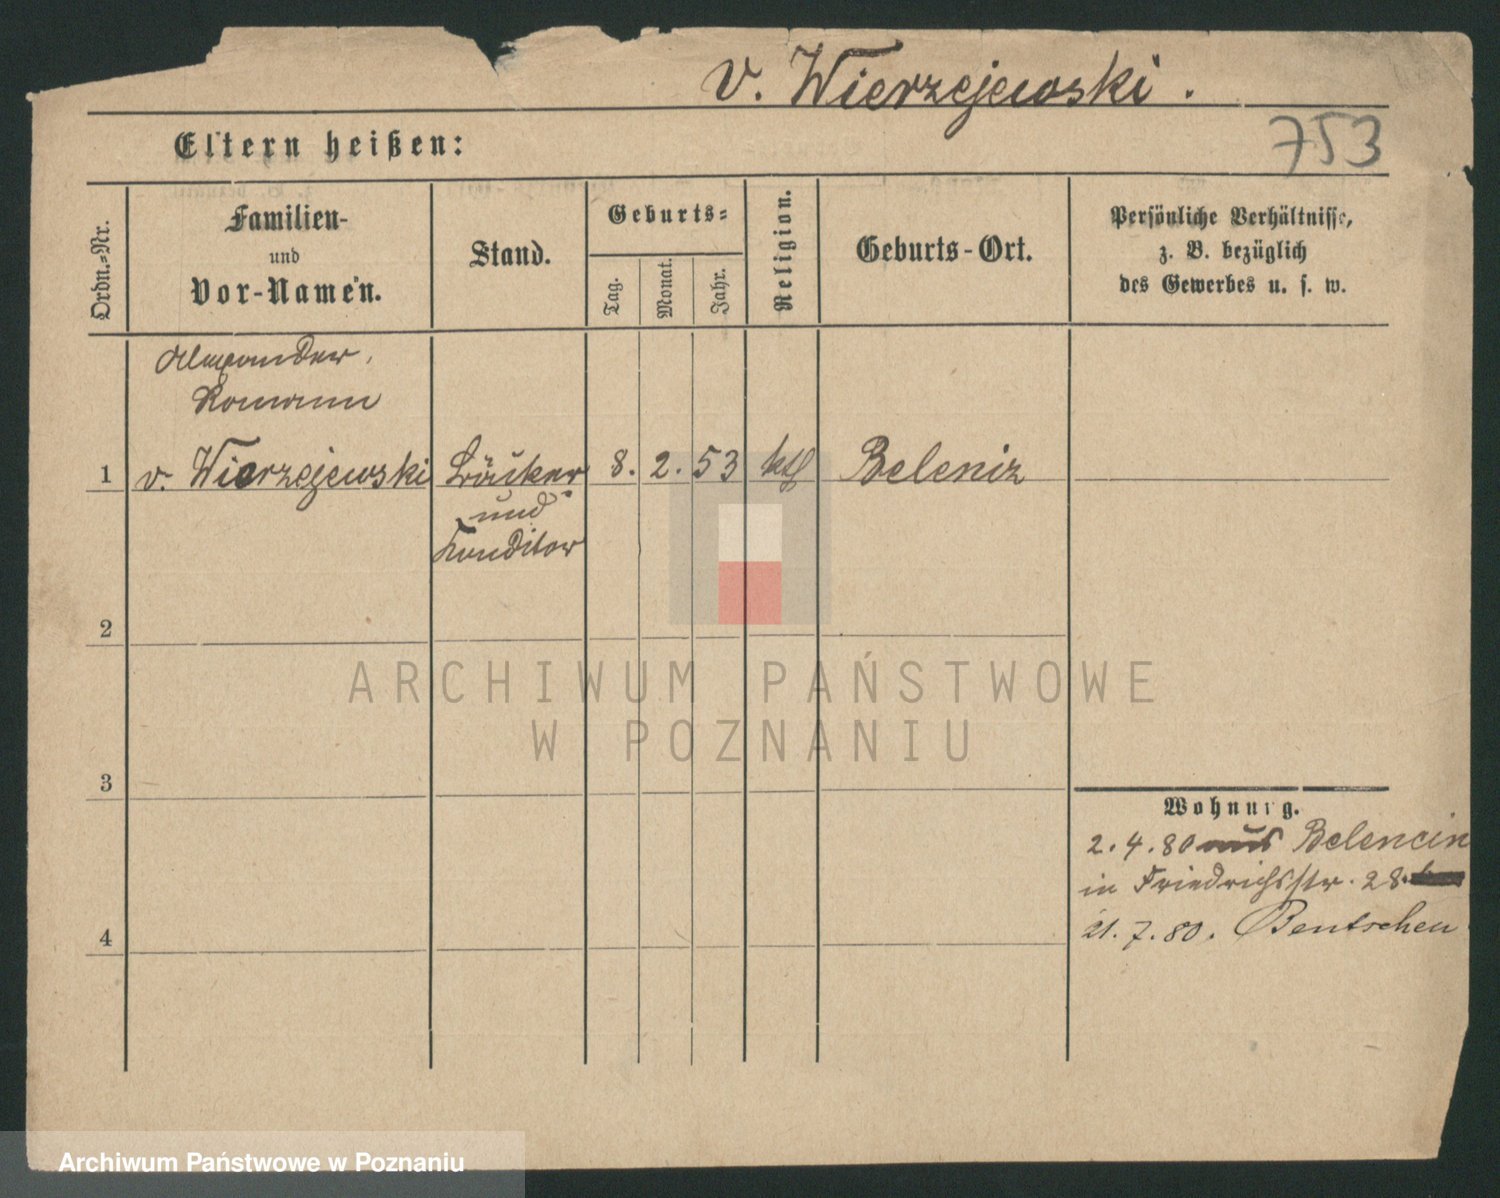 v. Wierzejewski.
753
Eltern heißen:
Ordn.-Nr.
Familien-
und
Vor-Namen.
Stand.
Geburts-
Tag.
Monat.
Jahr.
Religion.
Geburts-Ort.
Persönliche Verhältnisse,
z. B. bezüglich
des Gewerbes u. s. w.
Alexander,
Romann
1 v. Wierzejewski Bäcker 8. 2. 53 kth Beleniz
und
Konditor
2
3
4
Wohnung.
2. 4. 80 aus Belencin
in Friedrichsstr. 28.
21. 7. 80. Bentschen
ARCHIWUM PAŃSTWOWE
W POZNANIU
Archiwum Państwowe w Poznaniu